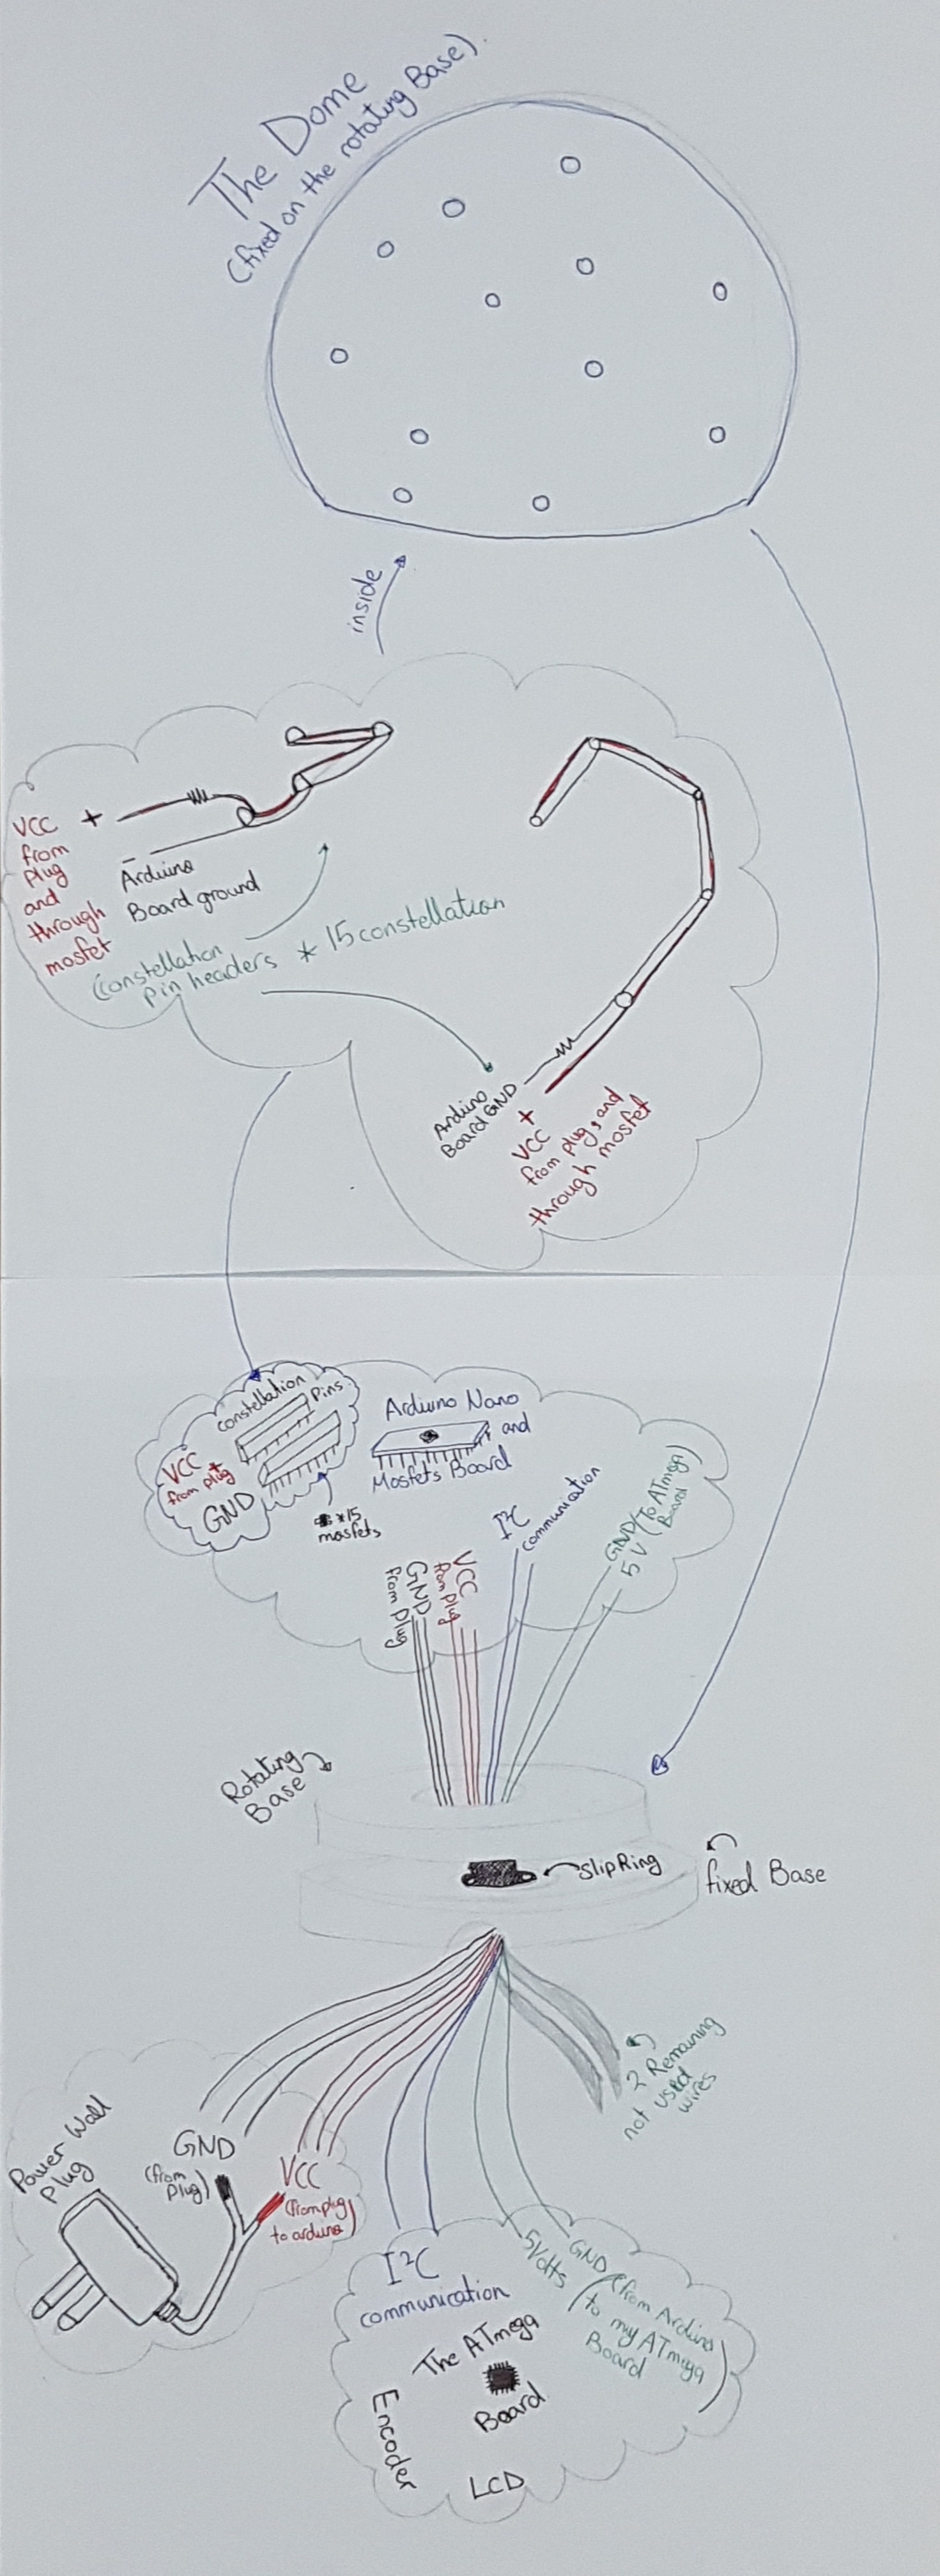 The Dome
(fixed on the rotating Base).
inside
VCC +
from
plug
and
through
mosfet
Arduino
Board ground
(constellation
pin headers * 15 constellation
Arduino
Board GND
+
VCC
from plug, and
through mosfet
constellation
Pins
VCC +
from plug
GND
*15
mosfets
Arduino Nano
and
Mosfets Board
I²C
communication
GND (To ATmega
5V Board)
GND
from plug
VCC
from plug
Rotating
Base
slipRing
fixed Base
2 Remaining
not used
wires
Power Wall
Plug
GND
(from
plug)
VCC
(from plug
to arduino)
I²C
communication
5Volts
GND
(from Arduino
to my ATmega
Board)
The ATmega
Board
Encoder
LCD